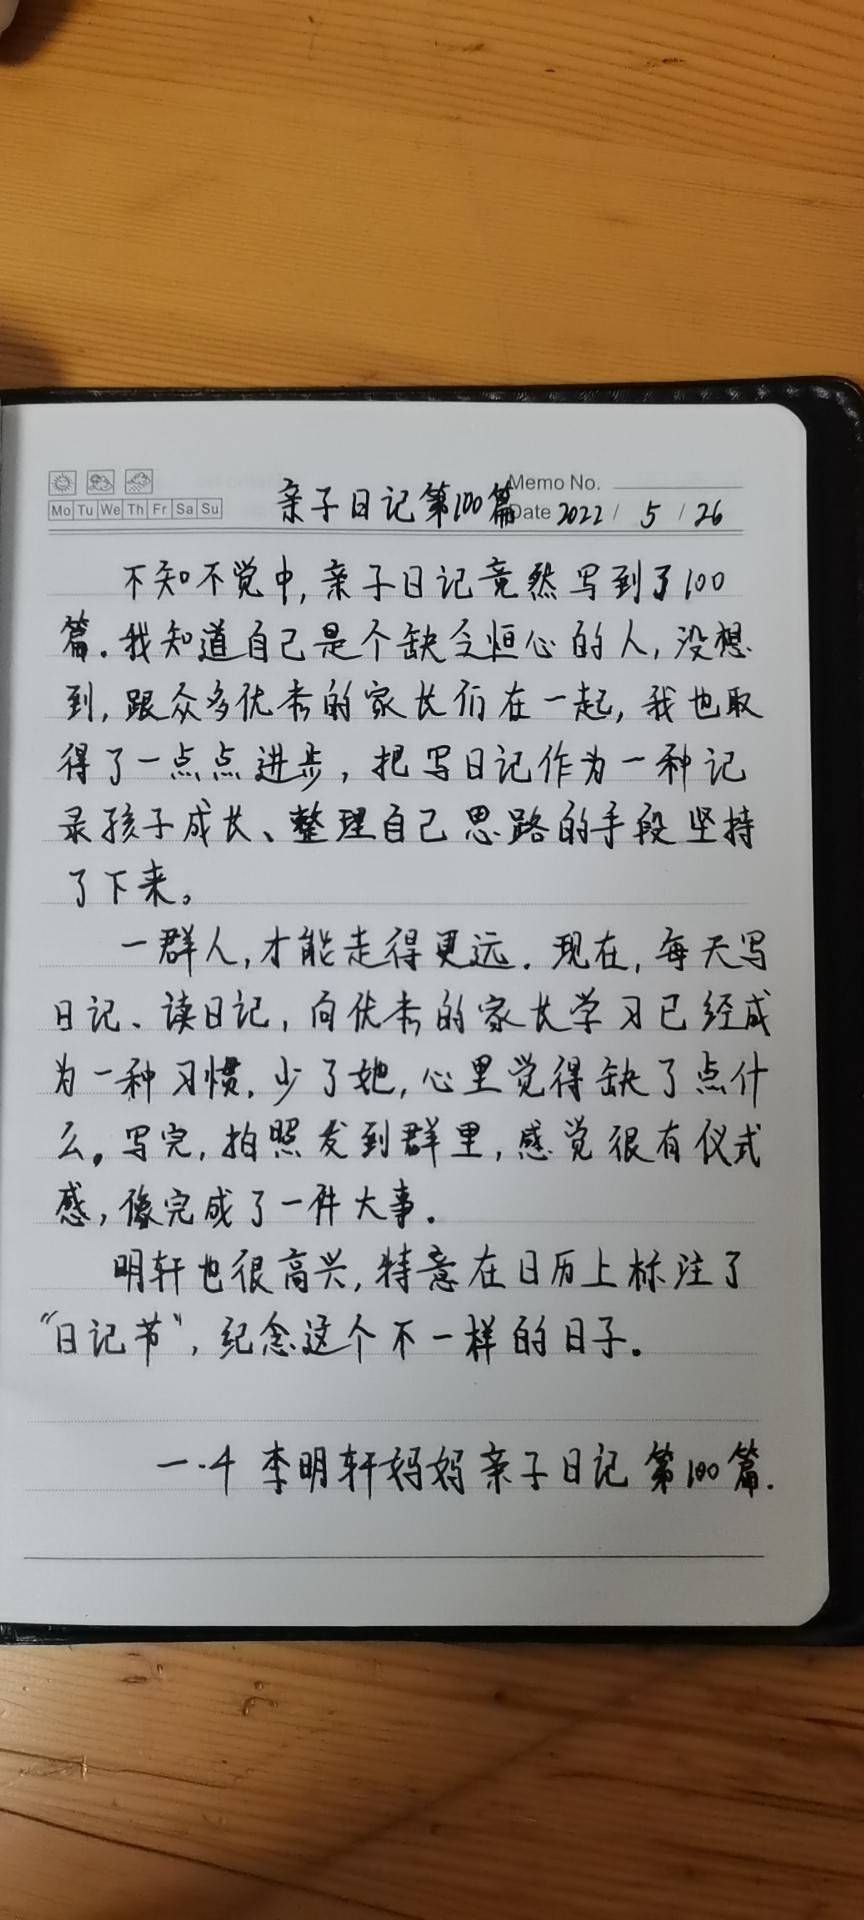 Memo No.
Mo Tu We Th Fr Sa Su
亲子日记第100篇 Date 2022 / 5 / 26
不知不觉中,亲子日记竟然写到了100
篇.我知道自己是个缺乏恒心的人,没想
到,跟众多优秀的家长们在一起,我也取
得了一点点进步,把写日记作为一种记
录孩子成长、整理自己思路的手段坚持
了下来。
一群人,才能走得更远.现在,每天写
日记、读日记,向优秀的家长学习已经成
为一种习惯.少了她,心里觉得缺了点什
么。写完,拍照发到群里,感觉很有仪式
感,像完成了一件大事.
明轩也很高兴,特意在日历上标注了
“日记节”,纪念这个不一样的日子。
一.4 李明轩妈妈亲子日记第100篇.